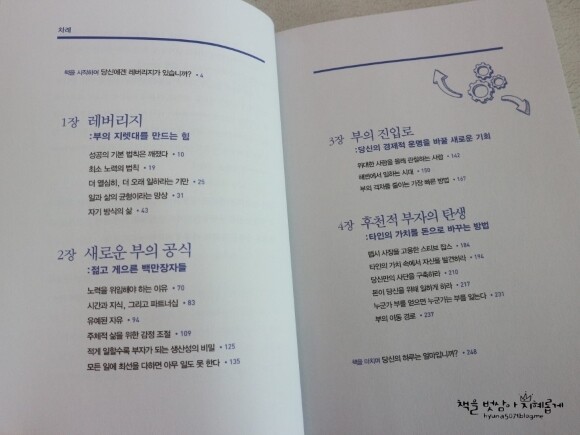 차례
책을 시작하며 당신에겐 레버리지가 있습니까? • 4
1장 레버리지
:부의 지렛대를 만드는 힘
성공의 기본 법칙은 깨졌다 • 10
최소 노력의 법칙 • 19
더 열심히, 더 오래 일하라는 기만 • 25
일과 삶의 균형이라는 망상 • 31
자기 방식의 삶 • 43
2장 새로운 부의 공식
:젊고 게으른 백만장자들
노력을 위임해야 하는 이유 • 70
시간과 지식, 그리고 파트너십 • 83
유예된 자유 • 94
주체적 삶을 위한 감정 조절 • 109
적게 일할수록 부자가 되는 생산성의 비밀 • 125
모든 일에 최선을 다하면 아무 일도 못 한다 • 135
3장 부의 진입로
:당신의 경제적 운명을 바꿀 새로운 기회
위대한 사람을 통해 관철하는 사람 • 142
해변에서 일하는 시대 • 150
부의 격차를 줄이는 가장 빠른 방법 • 167
4장 후천적 부자의 탄생
:타인의 가치를 돈으로 바꾸는 방법
펩시 사장을 고용한 스티브 잡스 • 184
타인의 가치 속에서 자신을 발견하라 • 194
당신만의 사단을 구축하라 • 210
돈이 당신을 위해 일하게 하라 • 217
누군가 부를 얻으면 누군가는 부를 잃는다 • 231
부의 이동 경로 • 237
책을 마치며 당신의 하루는 얼마입니까? • 248
책을 벗삼아 지혜롭게
hyuna5071blogme